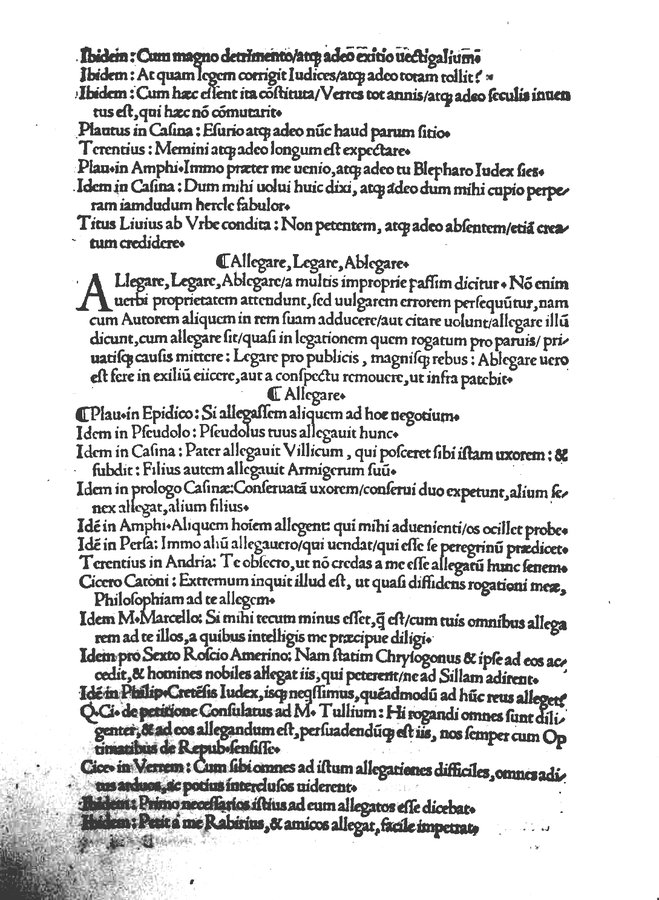 Ibidem : Cum magno detrimento/atq; adeo exitio uectigaliumō
Ibidem : At quam legem corrigit Iudices/atq; adeo totam tollit ?
Ibidem : Cum hæc essent ita cōstituta/Verres tot annis/atq; adeo seculis inuen
tus est, qui hæc nō cōmutarit.
Plautus in Casina : Esurio atq; adeo nūc haud parum sitio.
Terentius : Memini atq; adeo longum est expectare.
Plau.in Amphi.Immo præter me uenio, atq; adeo tu Blepharo Iudex sies.
Idem in Casina : Dum mihi uolui huic dixi, atq; adeo dum mihi cupio perpe-
ram iamdudum hercle fabulor.
Titus Liuius ab Vrbe condita : Non petentem, atq; adeo absentem/etiā crea-
tum credidere.
¶ Allegare, Legare, Ablegare.
ALlegare, Legare, Ablegare/a multis improprie passim dicitur. Nō enim
uerbi proprietatem attendunt, sed uulgarem errorem persequūtur, nam
cum Autorem aliquem in rem suam adducere/aut citare uolunt/allegare illū
dicunt, cum allegare sit/quasi in legationem quem rogatum pro paruis/ pri-
uatisq; causis mittere : Legare pro publicis , magnisq; rebus : Ablegare uero
est fere in exiliū eiicere, aut a conspectu remouere, ut infra patebit.
¶ Allegare.
¶ Plau.in Epidico : Si allegassem aliquem ad hoc negotium.
Idem in Pseudolo : Pseudolus tuus allegauit hunc.
Idem in Casina : Pater allegauit Villicum , qui posceret sibi istam uxorem : &
subdit : Filius autem allegauit Armigerum suū.
Idem in prologo Casinæ:Conseruatā uxorem/conserui duo expetunt, alium se-
nex allegat, alium filius.
Idē in Amphi.Aliquem hoīem allegent: qui mihi aduenienti/os occilet probe.
Idē in Persa: Immo aliū allegauero/qui uendat/qui esse se peregrinū prædicet.
Terentius in Andria: Te obsecro, ut nō credas a me esse allegatū hunc senem.
Cicero Catoni : Extremum inquit illud est, ut quasi diffidens rogationi meæ,
Philosophiam ad te allegem.
Idem M.Marcello: Si mihi tecum minus esset, q̄ est/cum tuis omnibus allega
rem ad te illos, a quibus intelligis me præcipue diligi.
Idem pro Sexto Roscio Amerino: Nam statim Chrysogonus & ipse ad eos ac-
cedit, & homines nobiles allegat iis, qui peterent/ne ad Sillam adirent.
Idē in Philip.Cretēsis Iudex, isq; neqssimus, quēadmodū ad hūc reus alleget?
Q.Ci. de petitione Consulatus ad M. Tullium : Hi rogandi omnes sunt dili-
genter, & ad eos allegandum est, persuadendūq; est iis, nos semper cum Op
timatibus de Repub.sensisse.
Cice. in Verrem : Cum sibi omnes ad istum allegationes difficiles, omnes adi-
tus arduos, ac potius interclusos uiderent.
Ibidem : Primo necessarios istius ad eum allegatos esse dicebat.
Ibidem : Petit a me Rabirius, & amicos allegat, facile impetrat,